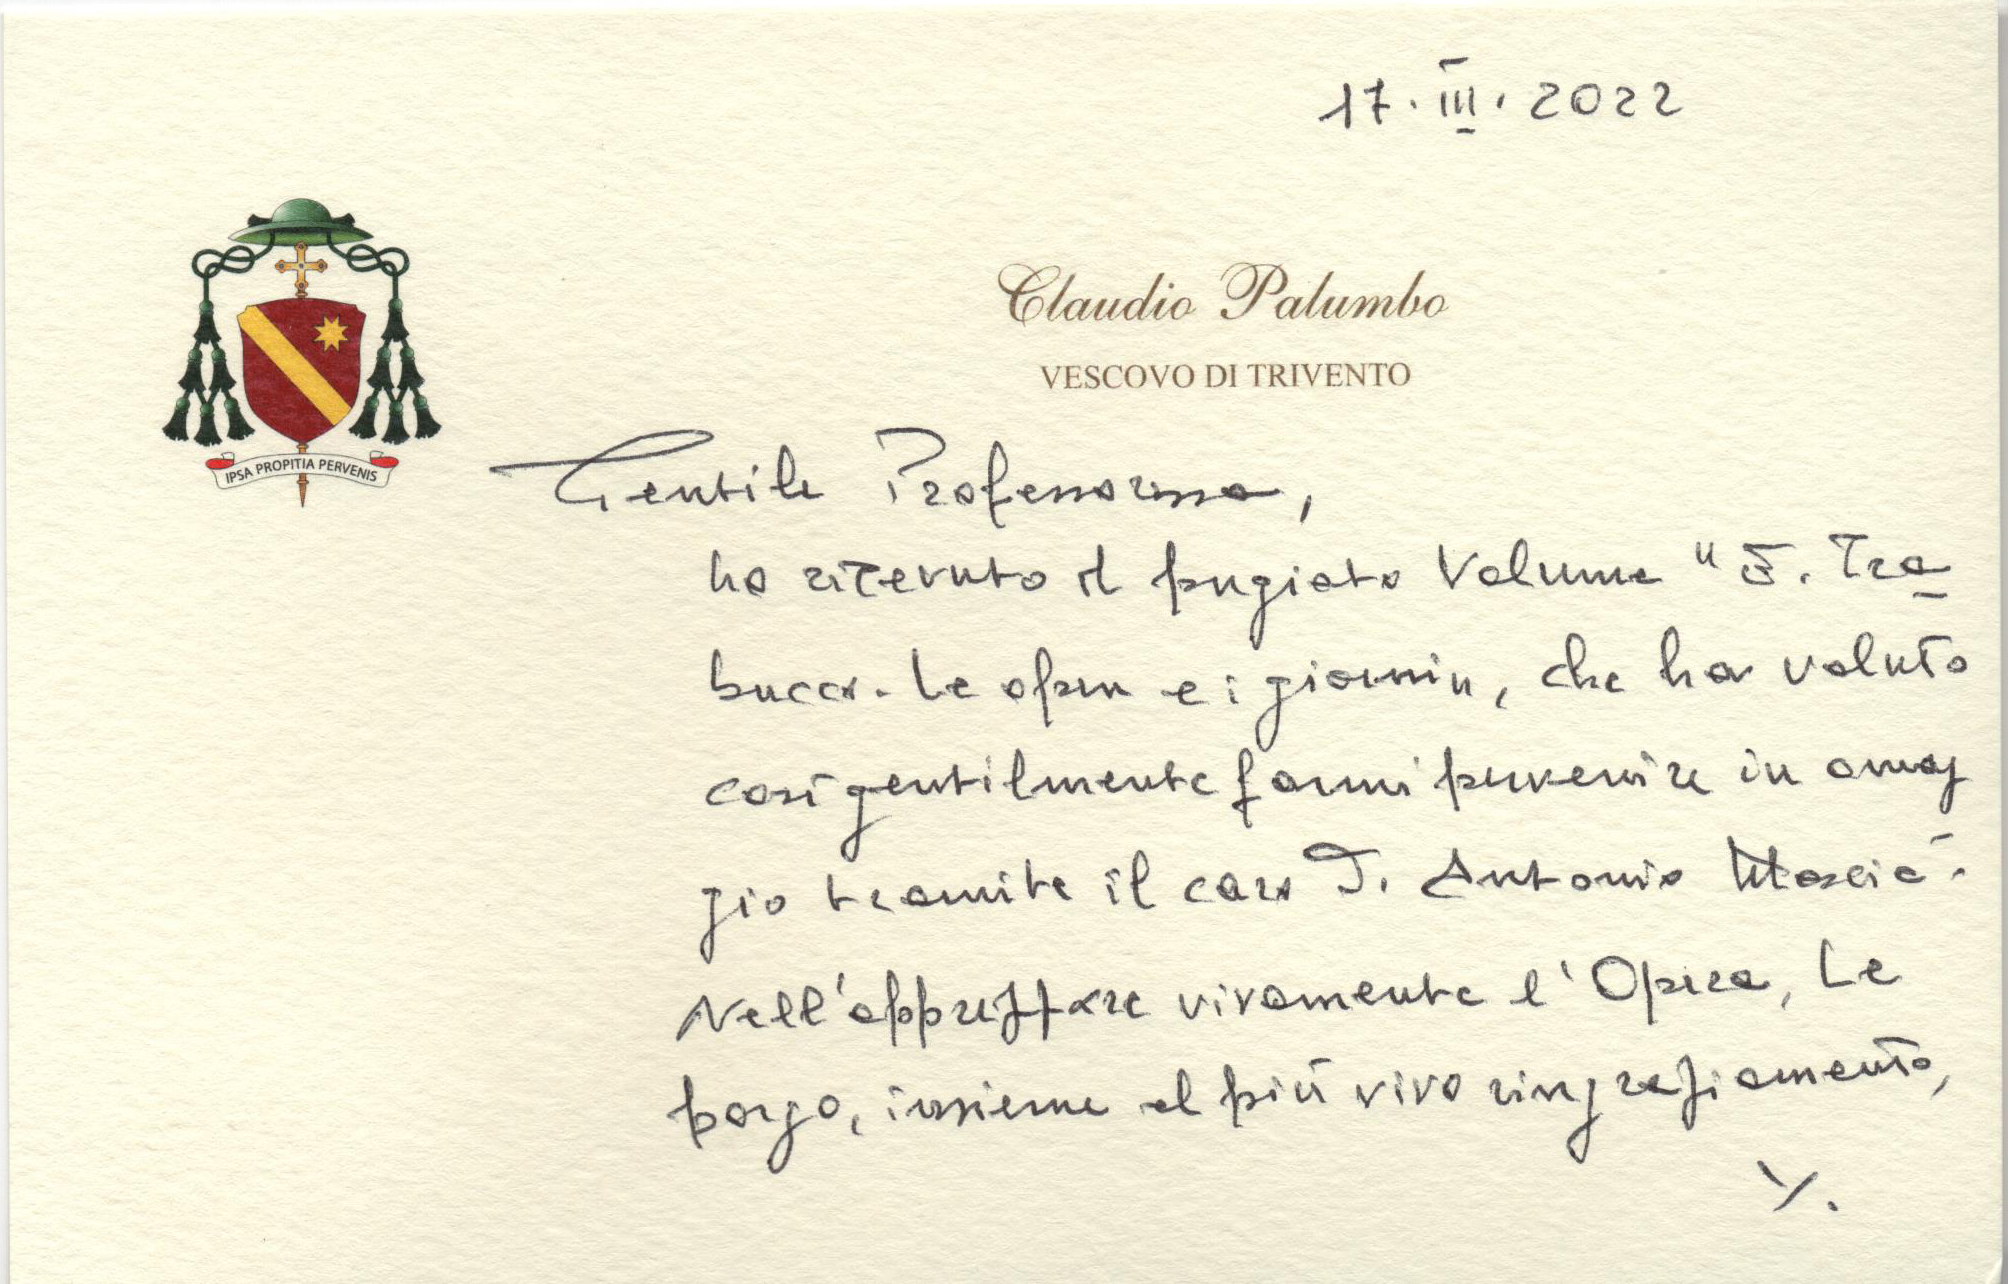 17. III. 2022
Claudio Palumbo
VESCOVO DI TRIVENTO
IPSA PROPITIA PERVENIS
Gentile Professoressa,
ho ricevuto il pregiato Volume "F. Tra
bucco. Le opere e i giorni", che ha voluto
così gentilmente farmi pervenire in omag
gio tramite il caro D. Antonio Mascia.
Nell'apprezzare vivamente l'Opera, Le
porgo, insieme al più vivo ringraziamento,